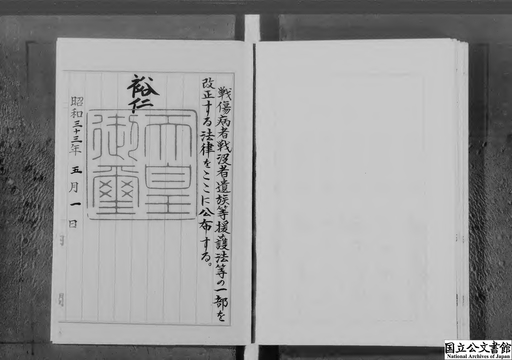 戦傷病者戦没者遺族等援護法等の一部を
改正する法律をここに公布する。
裕仁
天皇
御璽
昭和三十三年五月一日
国立公文書館
National Archives of Japan